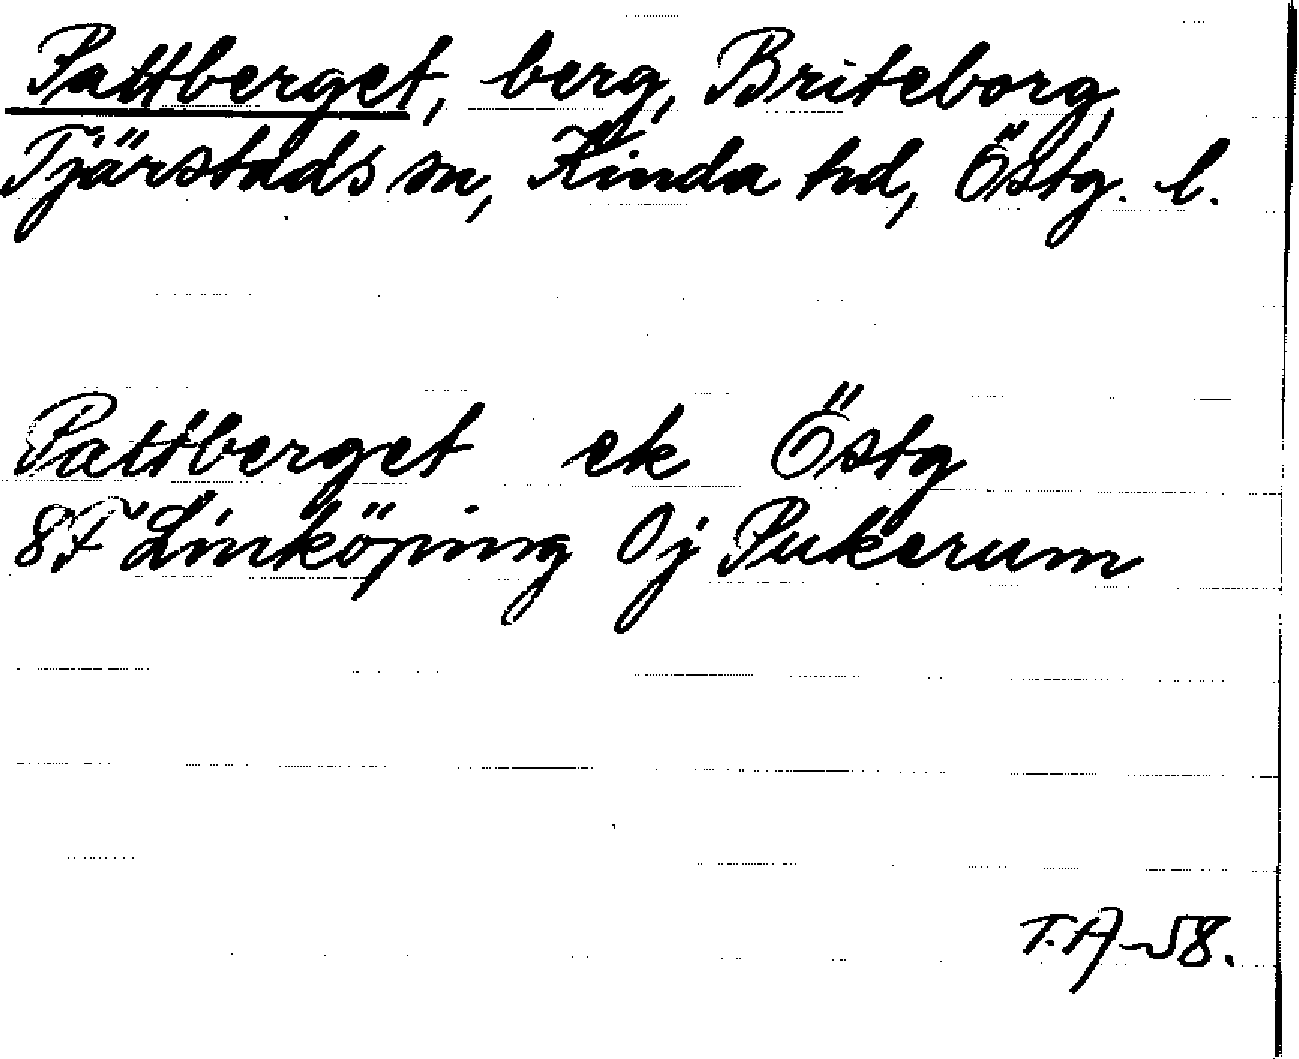 Pattberget, berg, Briteborg,
Tjärstads sn, Kinda hd, Östg. l.
Pattberget ek Östg
8F Linköping 0j Pukerum
T.A-58.